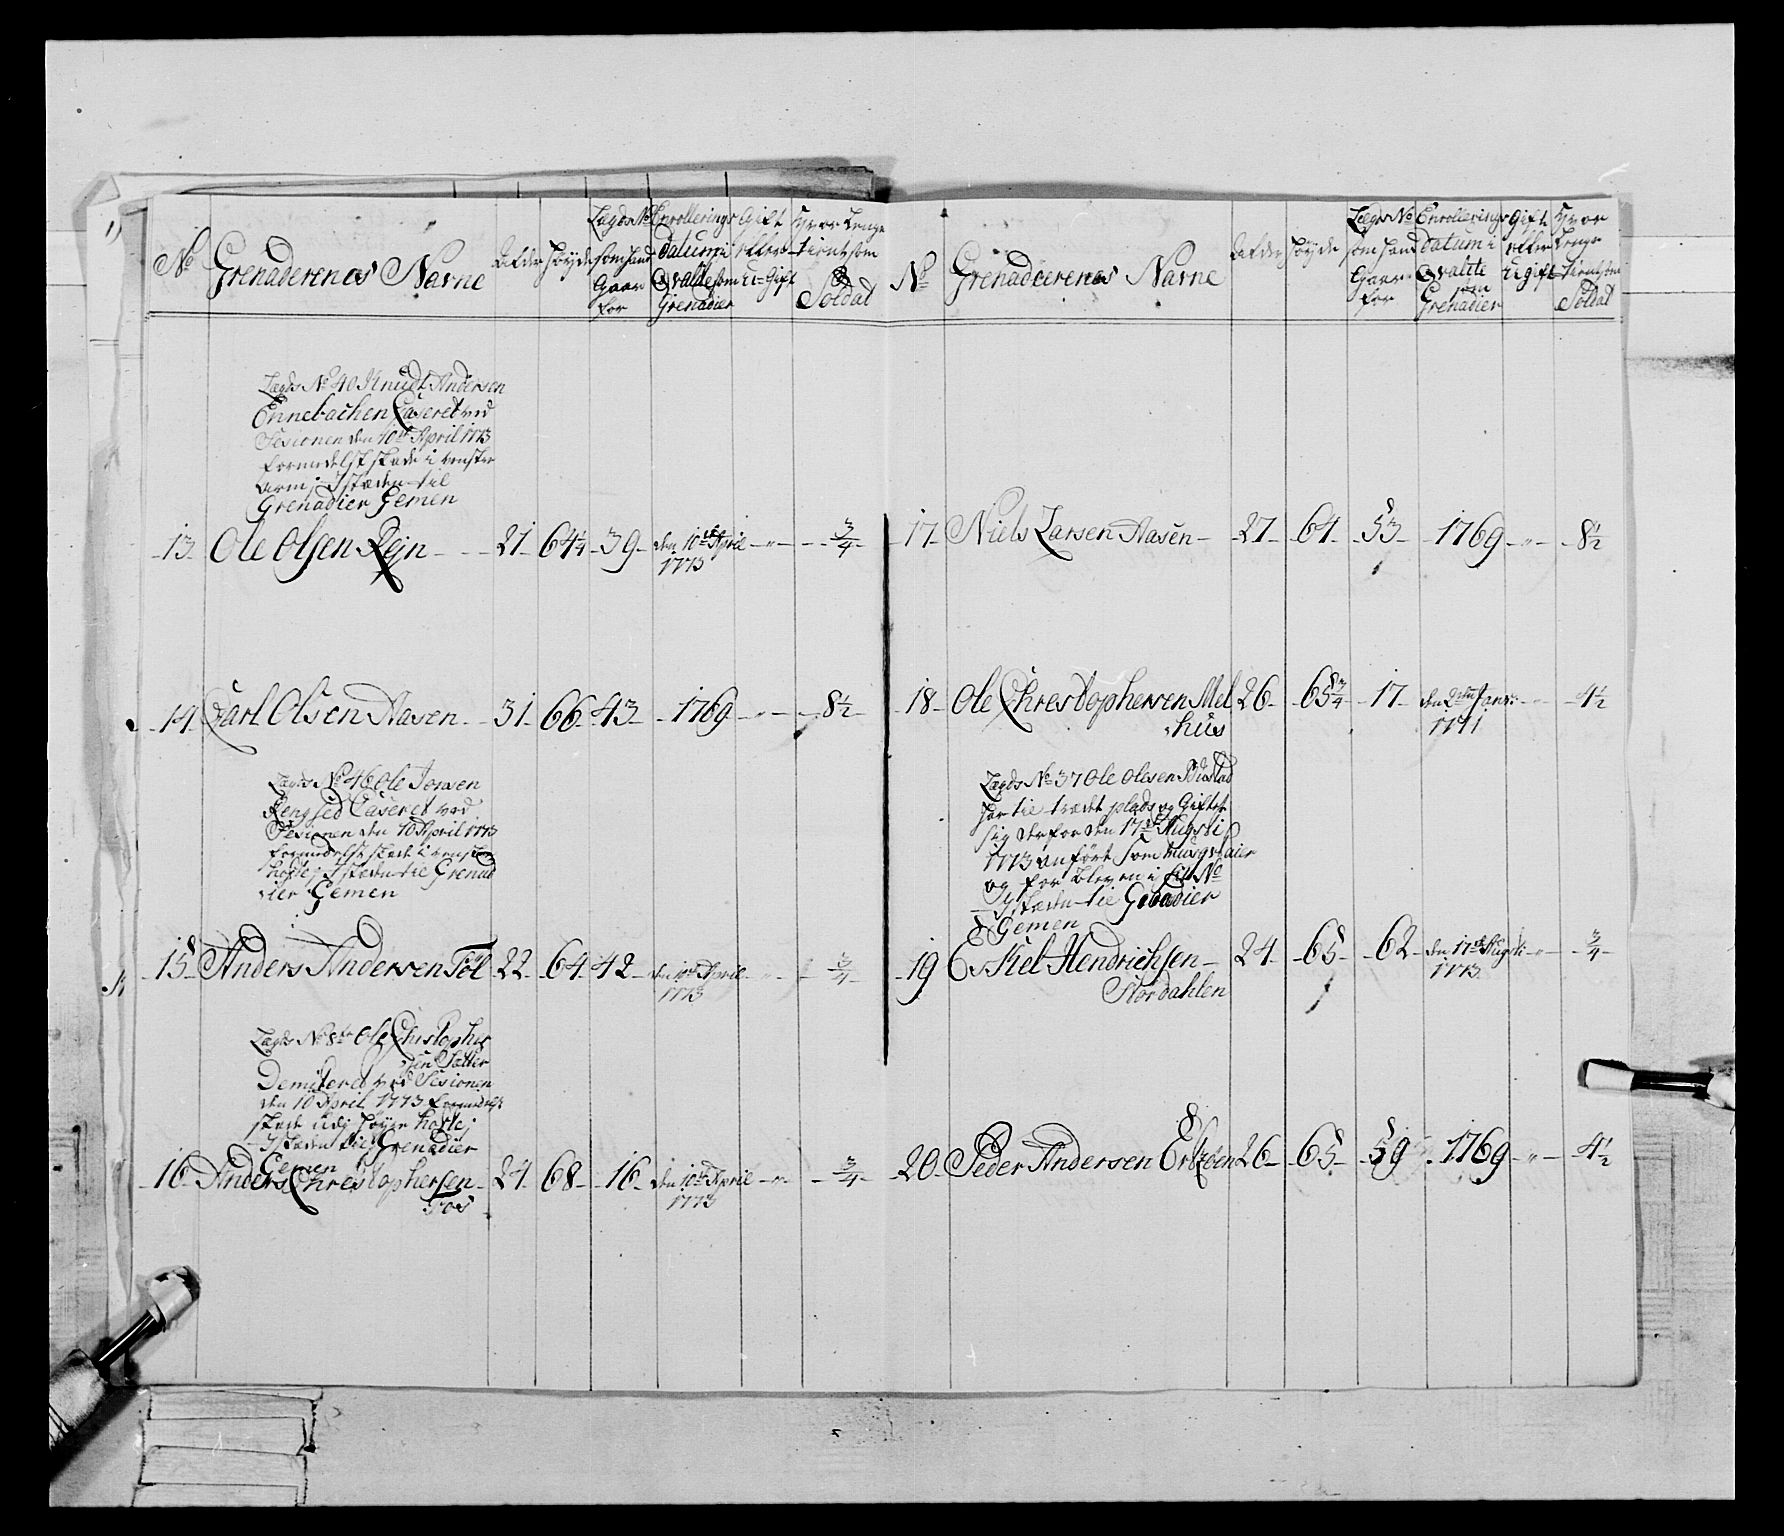 No
Grenaderenes Navne
Alder
Høyde
Lægds No
som hand
Gaar
for
Enrollerings
Datum i
Qvalite som
Grenadier
Gift
eller
U-Gift
Hvor Lenge
tient som
Soldat
Lægds No 40 Knudt Andersen
Ennebachen Caseret ved
Sesionen den 10de April 1773
formedelst skade i venster
Arm, I stæden til
Grenadier Gemen
13 Ole Olsen Rejn 21 64 1/4 39 den 10de April 1773 - „ - 3/4
14 Carl Olsen Aasen 31 66 43 1769 - „ - 8 1/2
Lægds No 46 Ole Jonsen
Rengsed Caseret ved
Sesionen den 10 April 1773
formedelst skade i venster
hofte, I stæden til Grenad
ier Gemen
15 Anders Andersen Töl 22 64 42 den 10de April 1773 - „ - 3/4
Lægds No 8de Ole Christopher
sen Sætter
Demiteret ved Sesionen
den 10 April 1773 formedelst
skade udj høyre hofte,
I stæden til Grenadier
Gemen
16 Anders Chrestophersen 24 68 16 den 10de April 1773 - „ - 3/4
Fos
No
Grenadeerenes Navne
Alder
Høyde
Lægds No
som hand
Gaar
for
Enrollerings
Datum i
Qvalite
som
Grenadier
Gift
eller
U gift
Hvor
Lenge
tient som
Soldat
17 Niels Larsen Aasen 27 64 53 1769 - „ - 8 1/2
18 Ole Chrestophersen Mel 26 65 3/4 17 den 2den Janr: 1771 - „ - 4 1/2
hus
Lægds No 37 Ole Olesen Bustad
har til trædt plads og Giftet
sig derfor den 17de Augsti
1773 anført som
og for bleven i sit No
I stæden til Grenadier
Gemen
19 Eskel Hendrichsen 24 65 62 den 17de Augsti 1773 - „ - 3/4
Stordahlen
20 Peder Andersen 26 65 59 1769 - „ - 4 1/2